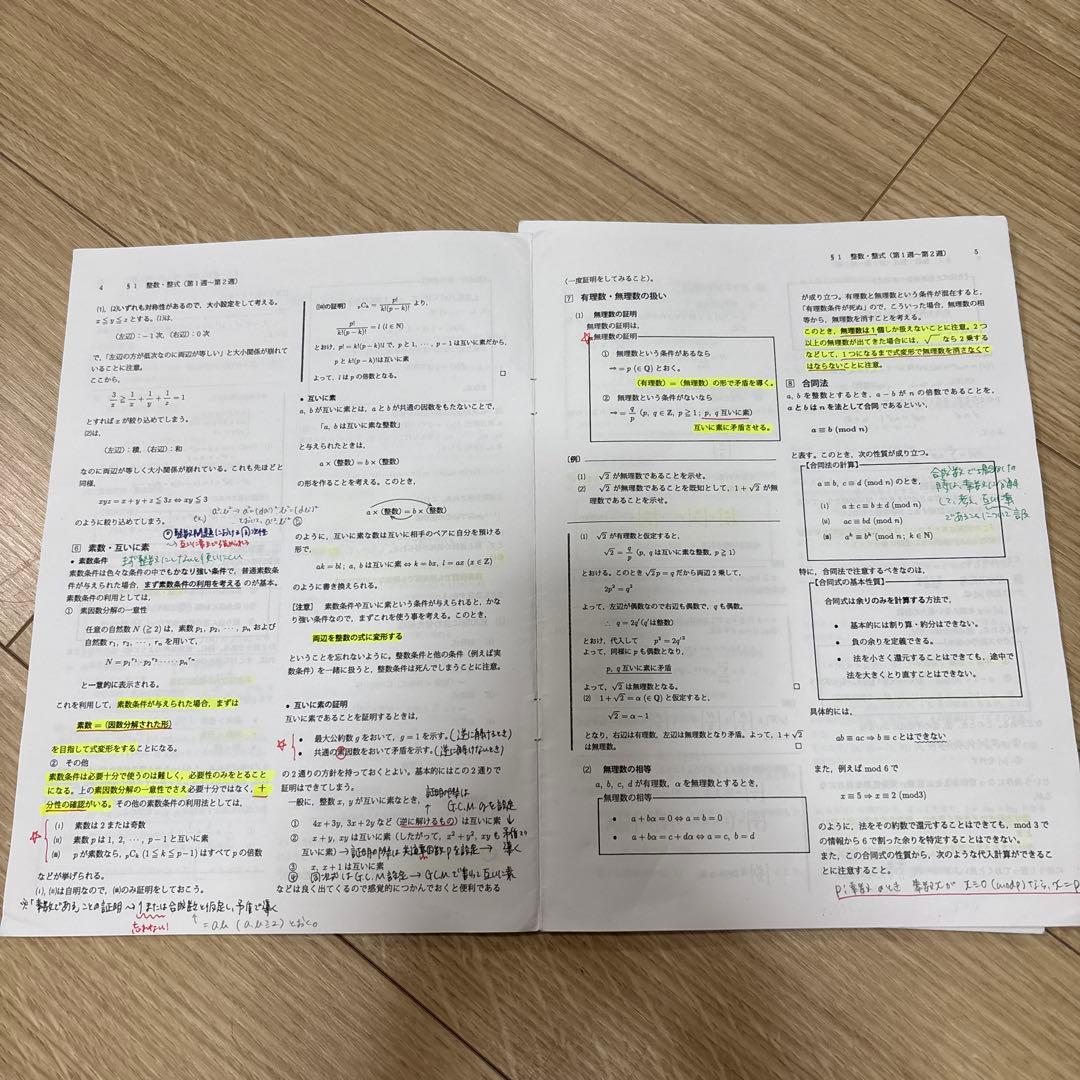 4 §1 整数・整式（第1週〜第2週）
(1), (2)いずれも対称性があるので，大小設定をして考える．
x ≦ y ≦ z とする．(1)は，
（左辺）：−1 次，（右辺）：0 次
で，「左辺の方が低次なのに両辺が等しい」と大小関係が崩れている
ことに注意．
ここから，
3/x ≧ 1/x + 1/y + 1/z = 1
とすれば x が絞り込めてしまう．
(2)は，
（左辺）：積，（右辺）：和
なのに両辺が等しく大小関係が崩れている．これも先ほどと
同様，
xyz = x + y + z ≦ 3z ⇔ xy ≦ 3
のように絞り込めてしまう．
6 素数・互いに素
• 素数条件
素数条件は色々な条件の中でもかなり強い条件で，普通素数条
件が与えられた場合，まず素数条件の利用を考える のが基本．
素数条件の利用としては，
① 素因数分解の一意性
任意の自然数 N (≧ 2) は，素数 p₁, p₂, ···, pₙ および
自然数 r₁, r₂, ···, rₙ を用いて，
N = p₁^r₁ · p₂^r₂ ····· pₙ^rₙ
と一意的に表示される．
これを利用して，素数条件が与えられた場合，まずは
素数 =（因数分解された形）
を目指して式変形をすることになる．
② その他
素数条件は必要十分で使うのは難しく，必要性のみをとること
になる．上の素因数分解の一意性でさえ必要十分ではなく，十
分性の確認がいる．その他の素数条件の利用法としては，
(i) 素数は 2 または奇数
(ii) 素数 p は 1, 2, ···, p − 1 と互いに素
(iii) p が素数なら，ₚCₖ (1 ≦ k ≦ p − 1) はすべて p の倍数
などが挙げられる．
(i), (ii)は自明なので，(iii)のみ証明をしておこう．
※「素数である」ことの証明 → 1または合成数と仮定し，矛盾で導く
忘れない!
[(iii)の証明] ₚCₖ = p!/k!(p − k)! より，
p!/k!(p − k)! = l (l ∈ N)
とおけ，p! = k!(p − k)!l で，p と 1, ···, p − 1 は互いに素だから，
p と k!(p − k)! は互いに素
よって，l は p の倍数となる． □
• 互いに素
a, b が互いに素とは，a と b が共通の因数をもたないことで，
「a, b は互いに素な整数」
と与えられたときは，
a × （整数）= b × （整数）
の形を作ることを考える．このとき，
a × （整数）= b × （整数）
のように，互いに素な数は互いに相手のペアに自分を預ける
形で，
ak = bl ; a, b は互いに素 ⇔ k = bz, l = az (z ∈ Z)
のように書き換えられる．
[注意] 素数条件や互いに素という条件が与えられると，かな
り強い条件なので，まずこれを使う事を考える．このとき，
両辺を整数の式に変形する
ということを忘れないように．整数条件と他の条件（例えば実
数条件）を一緒に扱うと，整数条件は死んでしまうことに注意．
• 互いに素の証明
互いに素であることを証明するときは，
• 最大公約数 g をおいて，g = 1 を示す．（逆に解けるとき）
• 共通の素因数をおいて矛盾を示す．（逆に解けないとき）
の 2 通りの方針を持っておくとよい．基本的にはこの 2 通りで
証明はできてしまう．
一般に，整数 x, y が互いに素なとき，
証明の時は
G.C.M gを設定
① 4x + 3y, 3x + 2y など（逆に解けるもの）
② x + y, xy は互いに素（したがって，x² + y², xy も
互いに素） → 証明の時は共通素因数Pを設定 → 矛盾で導く
③ x, x + 1 は互いに素
などは良く出てくるので感覚的につかんでおくと便利である
§1 整数・整式（第1週〜第2週） 5
（一度証明をしてみること）．
7 有理数・無理数の扱い
(1) 無理数の証明
無理数の証明は，
無理数の証明
① 無理数という条件があるなら
⇒ = p (∈ Q) とおく．
（有理数）=（無理数）の形で矛盾を導く．
② 無理数という条件がないなら
⇒ = q/p (p, q ∈ Z, p ≧ 1 ; p, q 互いに素)
互いに素に矛盾させる．
[例]
(1) √2 が無理数であることを示せ．
(2) √2 が無理数であることを既知として，1 + √2 が無
理数であることを示せ．
(1) √2 が有理数と仮定すると，
√2 = q/p (p, q は互いに素な整数, p ≧ 1)
とおける．このとき √2p = q だから両辺 2 乗して，
2p² = q²
よって，左辺が偶数なので右辺も偶数で，q も偶数．
∴ q = 2q′ (q′は整数)
とおけ，代入して p² = 2q′²
よって，同様に p も偶数となり，
p, q 互いに素に矛盾
よって，√2 は無理数となる． □
(2) 1 + √2 = α (∈ Q) と仮定すると，
√2 = α − 1
となり，右辺は有理数，左辺は無理数となり矛盾．よって，1 + √2
は無理数． □
(2) 無理数の相等
a, b, c, d が有理数，α が無理数とするとき，
無理数の相等
• a + bα = 0 ⇔ a = b = 0
• a + bα = c + dα ⇔ a = c, b = d
が成り立つ．有理数と無理数という条件が混在すると，
「有理数条件が死ぬ」ので，こういった場合，無理数の相
等から，無理数を消すことを考える．
このとき，無理数は 1 個しか扱えないことに注意．2 つ
以上の無理数が出てきた場合には，√ なら 2 乗する
などして，1 つになるまで式変形で無理数を消さなくて
はならないことに注意．
8 合同法
a, b を整数とするとき，a − b が n の倍数であることを，
a と b は n を法として合同 であるといい，
a ≡ b (mod n)
と表す．このとき，次の性質が成り立つ．
【合同法の計算】
a ≡ b, c ≡ d (mod n) のとき，
(i) a ± c ≡ b ± d (mod n)
(ii) ac ≡ bd (mod n)
(iii) aᵏ ≡ bᵏ (mod n ; k ∈ N)
特に，合同法で注意するべきなのは，
【合同式の基本性質】
合同式は余りのみを計算する方法で，
• 基本的には割り算・約分はできない．
• 負の余りを定義できる．
• 法を小さく還元することはできても，途中で
法を大きくとり直すことはできない．
具体的には，
ab ≡ ac ⇒ b ≡ c とはできない
また，例えば mod 6 で
x ≡ 5 ⇒ x ≡ 2 (mod3)
のように，法をその約数で還元することはできても，mod 3 で
の情報から 6 で割った余りを特定することはできない．
また，この合同式の性質から，次のような代入計算ができるこ
とに注意すること．
P:素数 のとき 素数xが x≡0 (mod p) なら, x=P